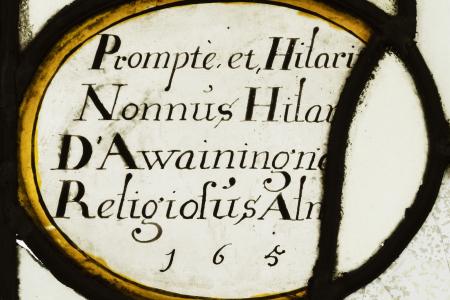 Promptè. et, Hilari
Nonnus Hilar
D'Awainingne
Religiosus Alm
1 6 5